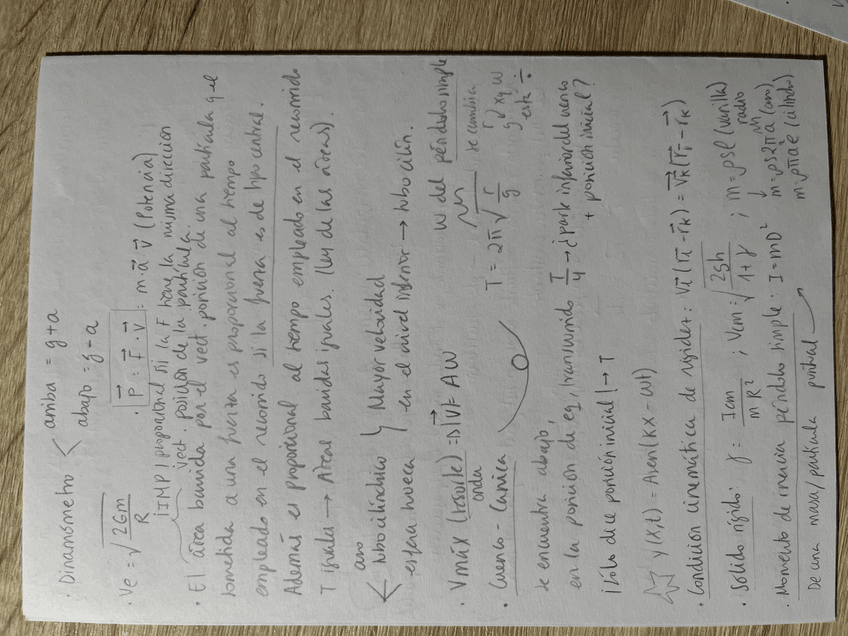 · Dinamómetro < arriba = g+a
abajo = g-a
· Ve = √(2Gm/R) · P = F·v = m·a·v (Potencia)
¡IMP! proporcional si la F tiene la misma dirección
vect. posición de la partícula.
· El área barrida por el vect. posición de una partícula q el
sometida a una fuerza es proporcional al tiempo
empleado en el recorrido si la fuerza es de tipo central.
Además es proporcional al tiempo empleado en el recorrido
T iguales → Áreas barridas iguales. (ley de las áreas).
aro
< tubo cilíndrico } Mayor velocidad
esfera hueca en el nivel inferior → tubo cilín.
· Vmáx (resorte) = |v| = Aw w del péndulo simple
onda
· Cuenco - Canica T = 2π √(r/g) se cambia
r y g xq w
está ÷
se encuentra abajo,
en la posición de eq, transcurrido T/4 → ¿parte inferior del cuenco
+ posición inicial?
¡Solo dice posición inicial! → T
y(x,t) = Asen(kx - wt)
· Condición cinemática de rigidez: Vi(ri - rk) = Vk(ri - rk)
· Sólido rígido: γ = Icm/mR² ; Vcm = √(2gh/1+γ) ; m = ρsl (varilla)
radio
· Momento de inercia péndulo simple: I = mD² m = ρs2πa (aro)
De una masa/partícula puntual m = ρπa²e (cilindro)